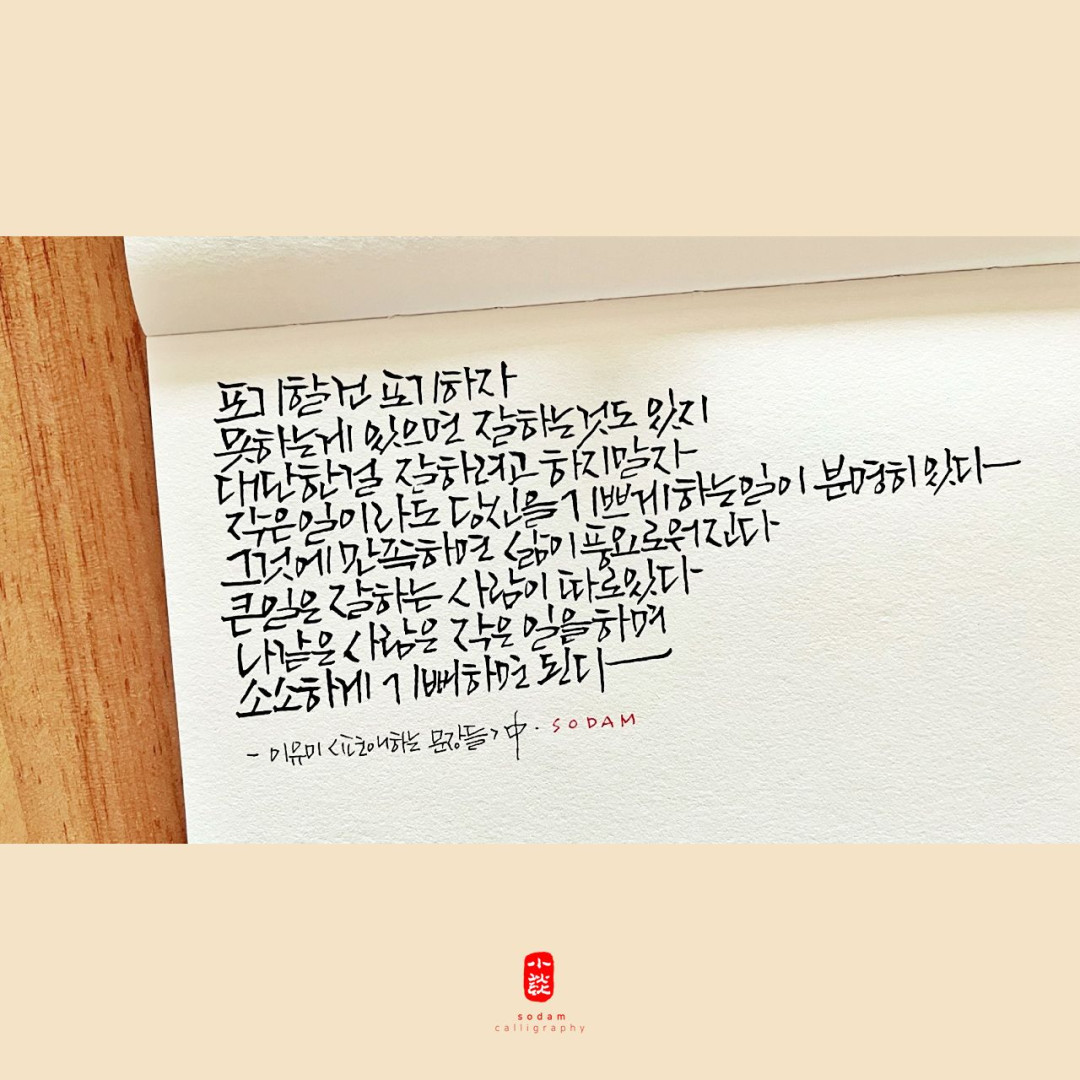 포기할건 포기하자
못하는게 있으면 잘하는것도 있지
대단한걸 잘하려고 하지말자
작은일이라도 당신을 기쁘게하는일이 분명히 있다
그것에 만족하면 삶이풍요로워진다
큰일은 잘하는 사람이 따로있다
나같은 사람은 작은 일을하며
소소하게 기뻐하면 된다
- 이유미 <편애하는 문장들> 中. SODAM
小談
sodam
calligraphy